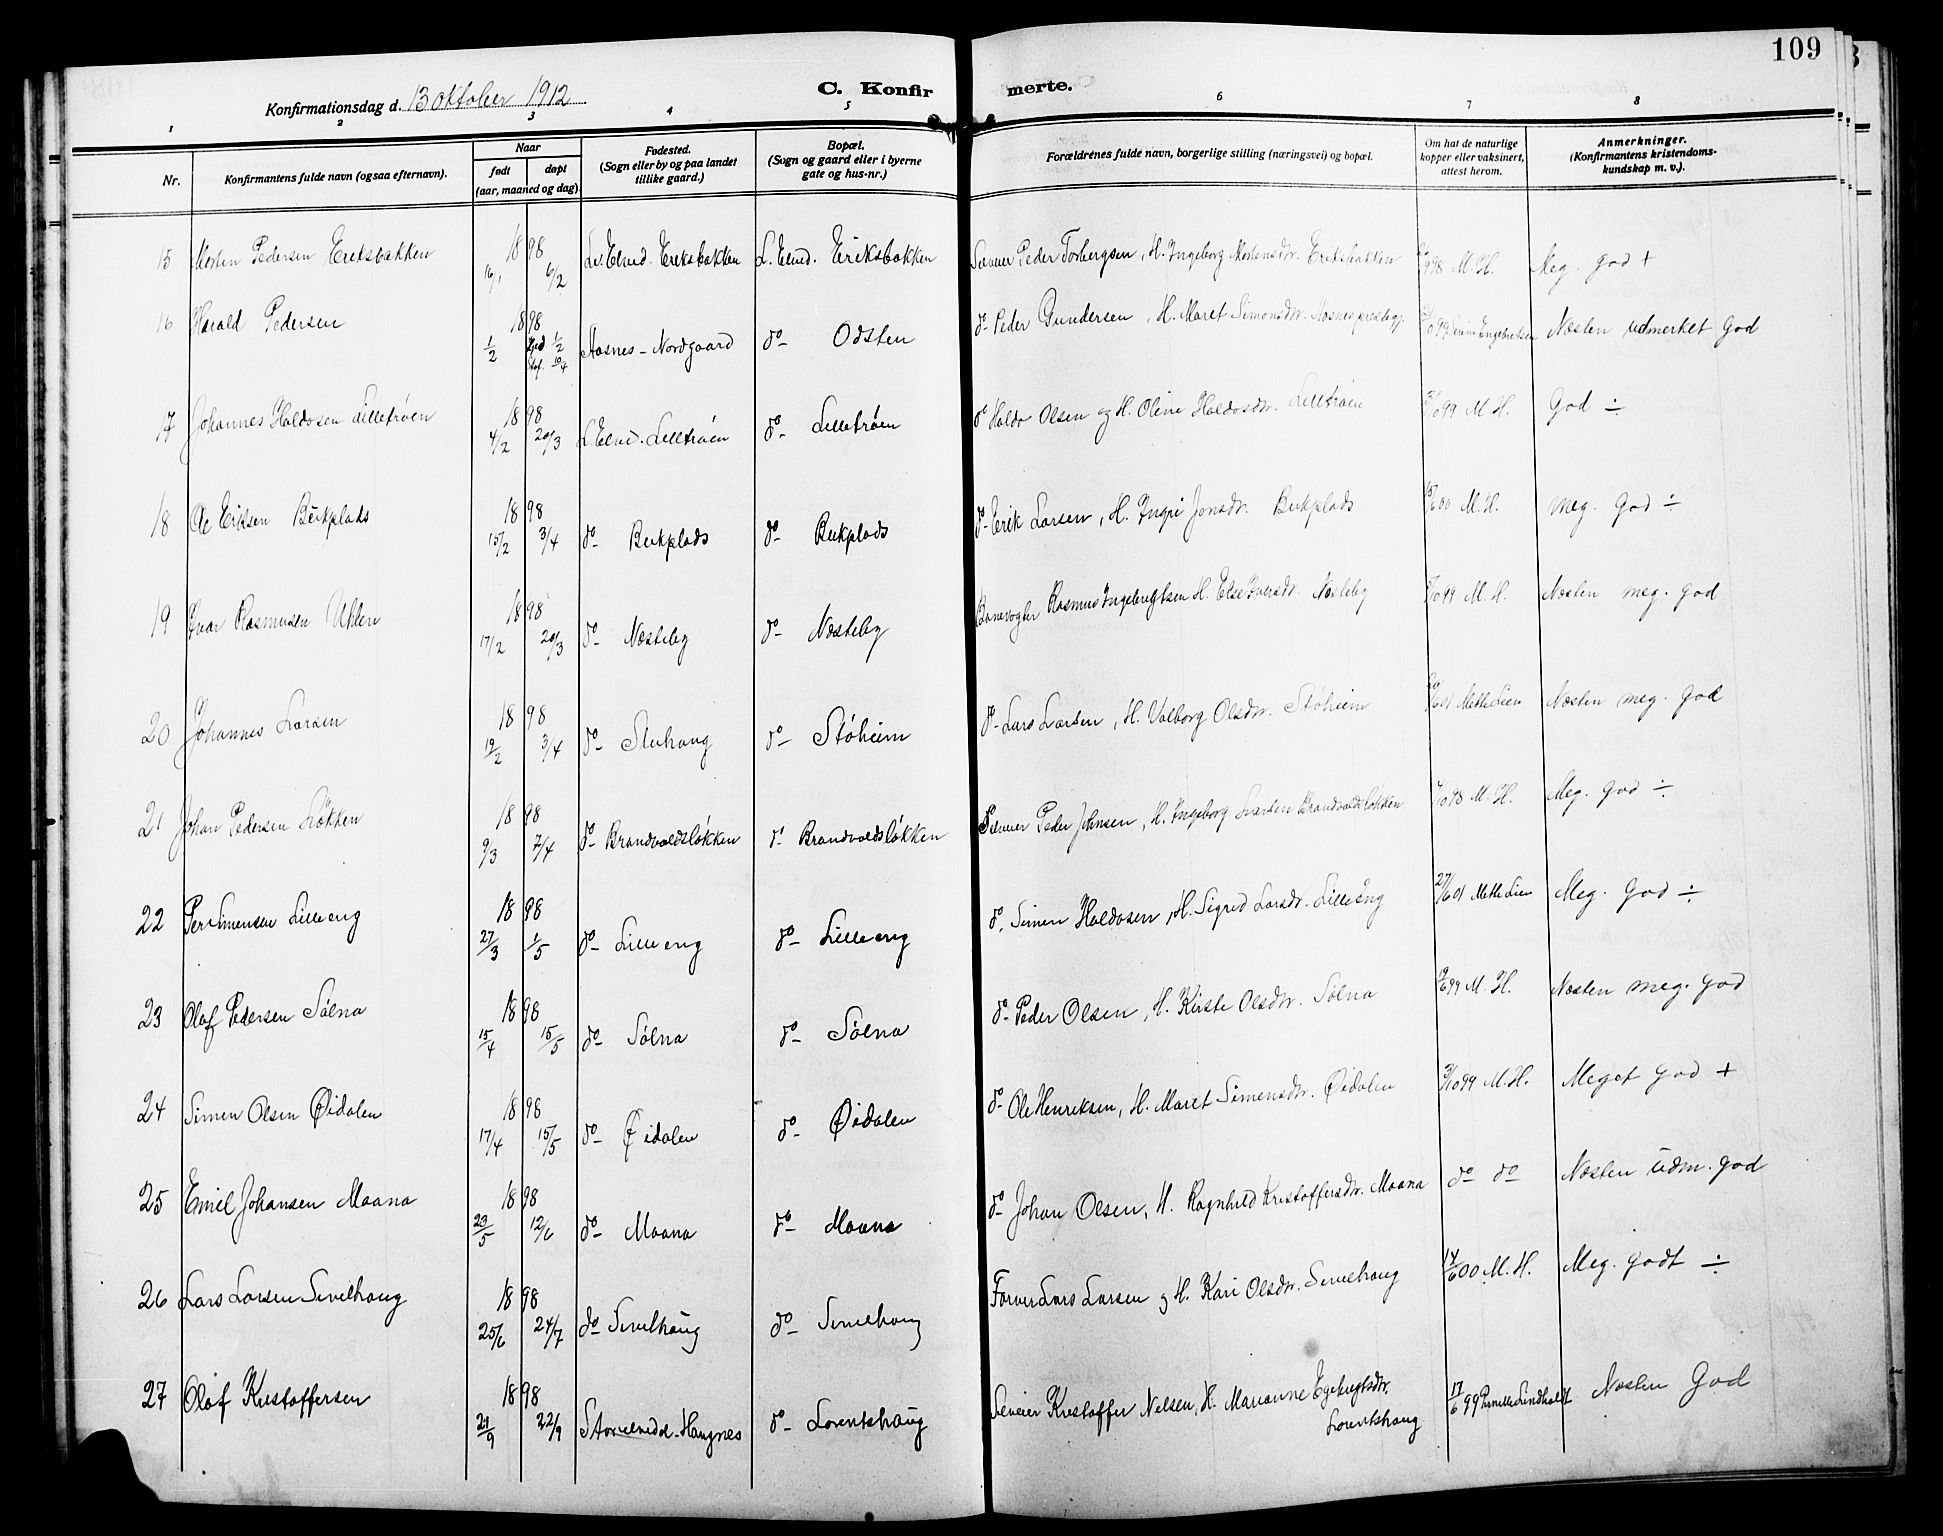 109
Konfirmationsdag d. 13 oktober 1912
C. Konfirmerte.
1 2 3 4 5 6 7 8
Nr.
Konfirmantens fulde navn (ogsaa efternavn).
Naar
født døpt
(aar, maaned og dag)
Fødested.
(Sogn eller by og paa landet
tillike gaard.)
Bopæl.
(Sogn og gaard eller i byerne
gate og hus-nr.)
Forældrenes fulde navn, borgerlige stilling (næringsvei) og bopæl.
Om hat de naturlige
kopper eller vaksinert,
attest herom.
Anmerkninger.
(Konfirmantens kristendoms-
kundskap m. v.).
15 Morten Pedersen Eriksbakken 1898 16/1 6/2 L. Elved. Eriksbakken L. Elved. Eriksbakken Selveier Peder Torbergsen, H. Ingeborg Mortensdr. Eriksbakken 98 M. H. Meg. god +
16 Harald Pedersen 1898 1/2 Hjed. 1/2 Staf. 10/4 Hosnes - Nordgaard do - Odsten do - Peder Gundersen, H. Maret Simonsdr. 99 Næsten udmerket God
17 Johannes Haldosen Lilletrøen 1898 4/2 20/3 L. Elved. Lilletrøen do - Lilletrøen do Haldo Olsen og H. Oline Haldosdr. Lilletrøen 3/10 99 M. H. God ÷
18 Ole Eriksen Beckplads 1898 15/2 3/4 do - Beckplads do - Beckplads do - Erik Larsen, H. Ingri Jonsdr. Beckplads 15/6 00 M. H. meg. god ÷
19 Ivar Rasmusen Uhlen 1898 17/2 20/3 do - Næsteby do - Næsteby Banevogter Rasmus Ingebregtsen H. Else Iversdr. Næsteby 3/10 99 M. H. Næsten meg. god
20 Johannes Larsen 1898 19/2 3/4 do - Stuhaug do - Støheim do - Lars Larsen, H. Valborg Olsdr. Støheim 01 Methe Lien Næsten meg. god
21 Johan Pedersen Løkken 1898 9/3 7/4 do - Brandvoldsløkken do - Brandvoldsløkken Selveier Peder Johnsen, H. Ingeborg Larsen Brandvoldsløkken 98 M. H. Meg. god ÷
22 Per Simensen Lilleeng 1898 27/3 1/5 do - Lilleeng do - Lilleeng do. Simen Haldosen, H. Sigrid Larsdr. Lilleeng 27/6 01 Methe Lien Meg. God ÷
23 Olaf Pedersen Sølna 1898 15/4 15/5 do - Sølna do - Sølna do - Peder Olsen, H. Kirsti Olsdtr. Sølna 9/6 99 M. H. Næsten meg. god
24 Simen Olsen Øidalen 1898 17/4 15/5 do - Øidalen do - Øidalen do - Ole Henriksen, H. Maret Simensdr. Øidalen 3/10 99 M. H. Meget god +
25 Emil Johansen Moana 1898 23/5 12/6 do - Moana do - Moana do - Johan Olsen, H. Ragnhild Kristoffersdr. Moana do do Næsten udm. god
26 Lars Larsen Sivilhaug 1898 25/6 24/7 do Sivilhaug do - Sivilhaug Forver Lars Larsen og H. Kari Olsdtr. Sivilhaug 14/6 00 M. H. Meg. godt ÷
27 Olaf Kristoffersen 1898 21/9 22/9 Storelvedal - Haugnes do - Lorentshaug Selveier Kristoffer Nilsen, H. Marianne Egebregtsdtr.
Lorentshaug 17/6 99 Pernille Lindholdt Næsten God